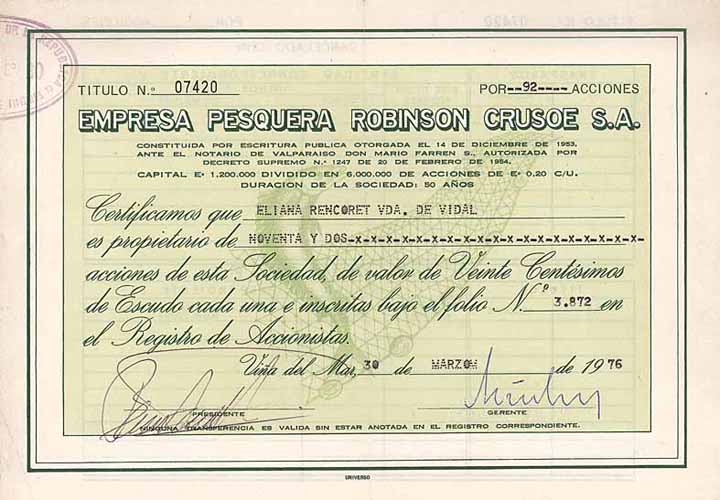 TITULO N.º 07420
POR--92----ACCIONES
EMPRESA PESQUERA ROBINSON CRUSOE S.A.
CONSTITUIDA POR ESCRITURA PUBLICA OTORGADA EL 14 DE DICIEMBRE DE 1953,
ANTE EL NOTARIO DE VALPARAISO DON MARIO FARREN S., AUTORIZADA POR
DECRETO SUPREMO N.º 1247 DE 20 DE FEBRERO DE 1954.
CAPITAL Eº 1.200.000 DIVIDIDO EN 6.000.000 DE ACCIONES DE Eº 0,20 C/U.
DURACION DE LA SOCIEDAD: 50 AÑOS
Certificamos que ELIANA RENCORET VDA. DE VIDAL
es propietario de NOVENTA Y DOS-x-x-x-x-x-x-x-x-x-x-x-x-x-x-x-
acciones de esta Sociedad, de valor de Veinte Centésimos
de Escudo cada una e inscritas bajo el folio N.º 3.872 en
el Registro de Accionistas.
Viña del Mar, 30 de MARZOM de 1976
PRESIDENTE
GERENTE
NINGUNA TRANSFERENCIA ES VALIDA SIN ESTAR ANOTADA EN EL REGISTRO CORRESPONDIENTE.
UNIVERSO